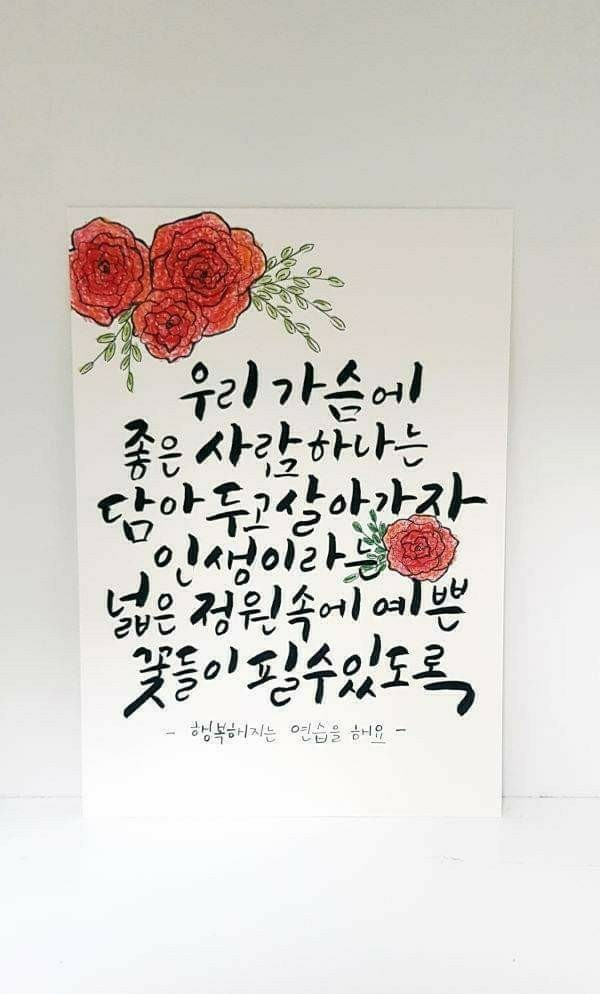 우리 가슴에
좋은 사람 하나는
담아 두고 살아가자
인생이라는
넓은 정원속에 예쁜
꽃들이 필수있도록
- 행복해지는 연습을 해요 -